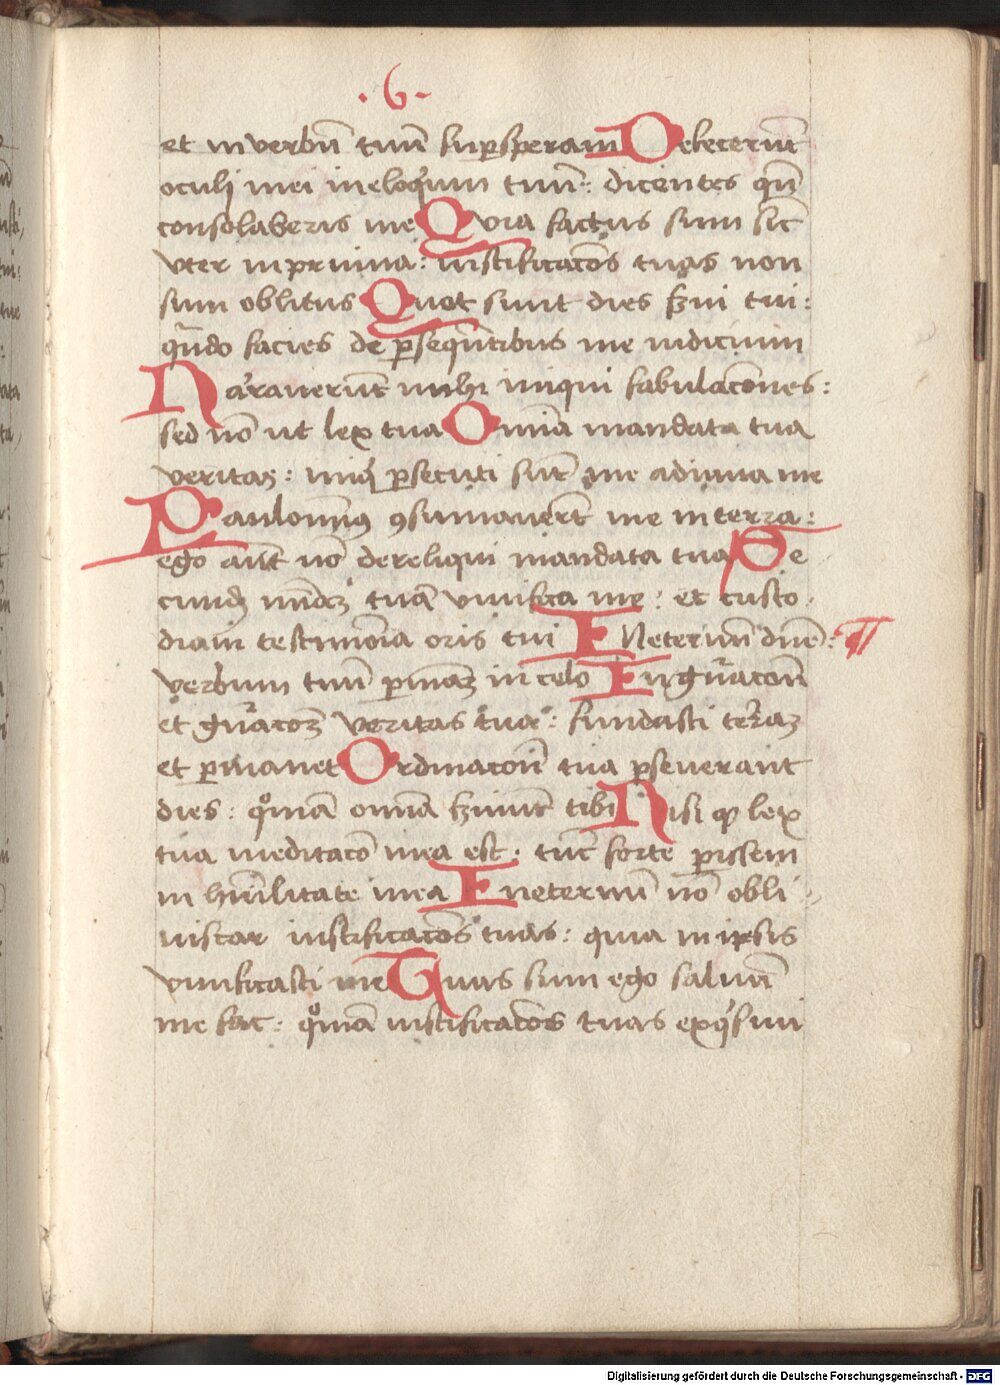 ·6·
et in verbū tuū supersperaui Defecerūt
oculi mei in eloquium tuū: dicentes qn̄
consolaberis me Quia factus sum sic̄
vter in pruina: iustificacōes tuas non
sum oblitus Quot sunt dies serui tui:
qn̄do facies de persequētibus me iudicium
Narrauerūt michi iniqui fabulacōnes:
sed nō ut lex tua Omīa mandata tua
veritas: iniq̨ persecuti sūt me adiuua me
Paulominꝰ ꝯsumauerūt me in terra:
ego aūt nō dereliqui mandata tua Se
cundū mīam tuā viuifica me: et custo
diam testimonia oris tui In eternum dn̄e: ¶
verbum tuū permanet in celo In gn̄acōnē
et gn̄acōem veritas tua: fundasti terram
et permanet Ordinacōnē tua perseuerant
dies: quoniā omīa seruiūt tibi Nisi quod lex
tua meditacō mea est: tūc forte perissem
in humilitate mea In eternū nō obli
uiscar iustificacōes tuas: quia in ipsis
viuificasti me Tuus sum ego saluū
me fac: quoniā iustificacōes tuas exquisiui
Digitalisierung gefördert durch die Deutsche Forschungsgemeinschaft - DFG